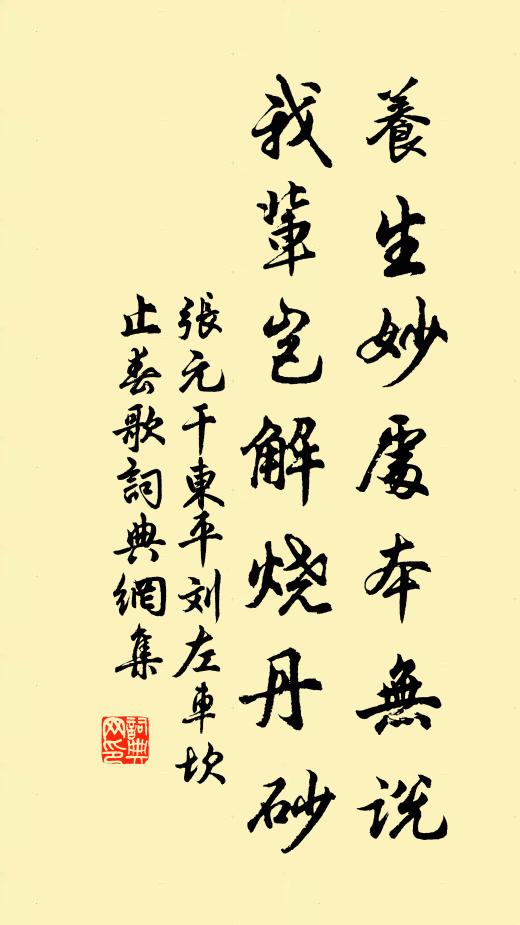 養生妙處本無説
我輩豈解烧丹砂
張元干東平刘左車坎
止春歌詞典網集
詞典網印